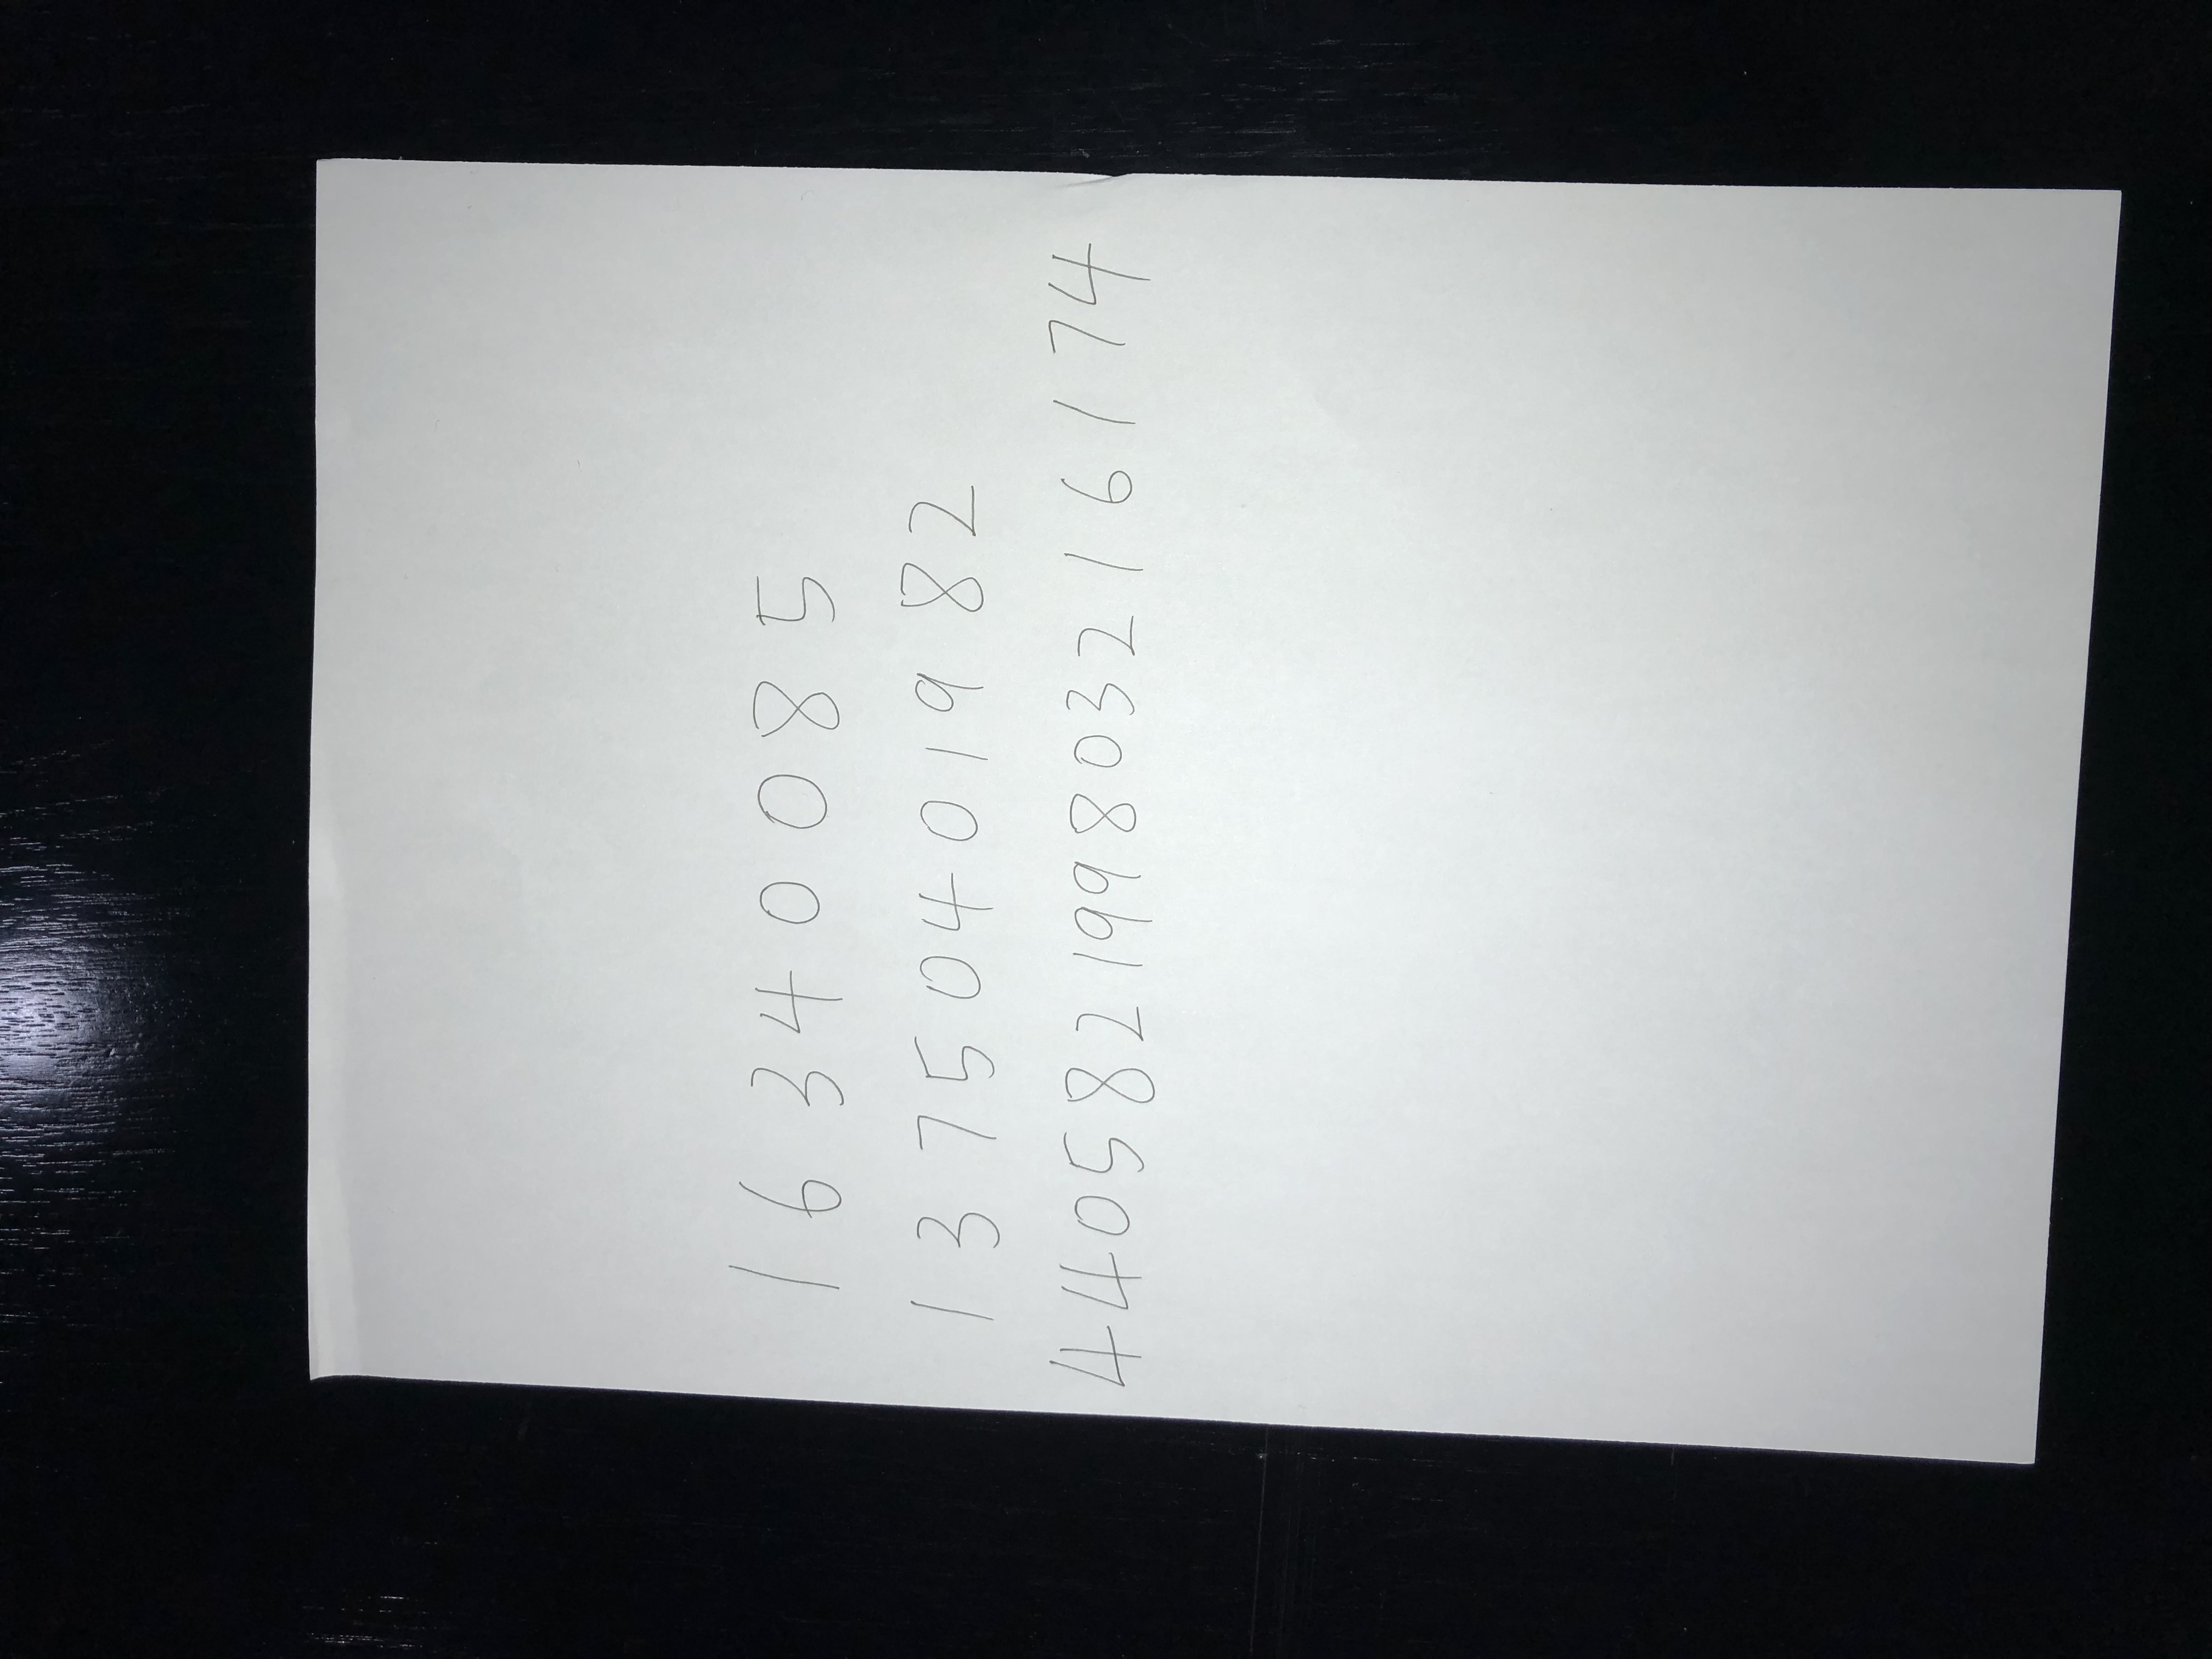 16340085
13750401982
440582199803216174